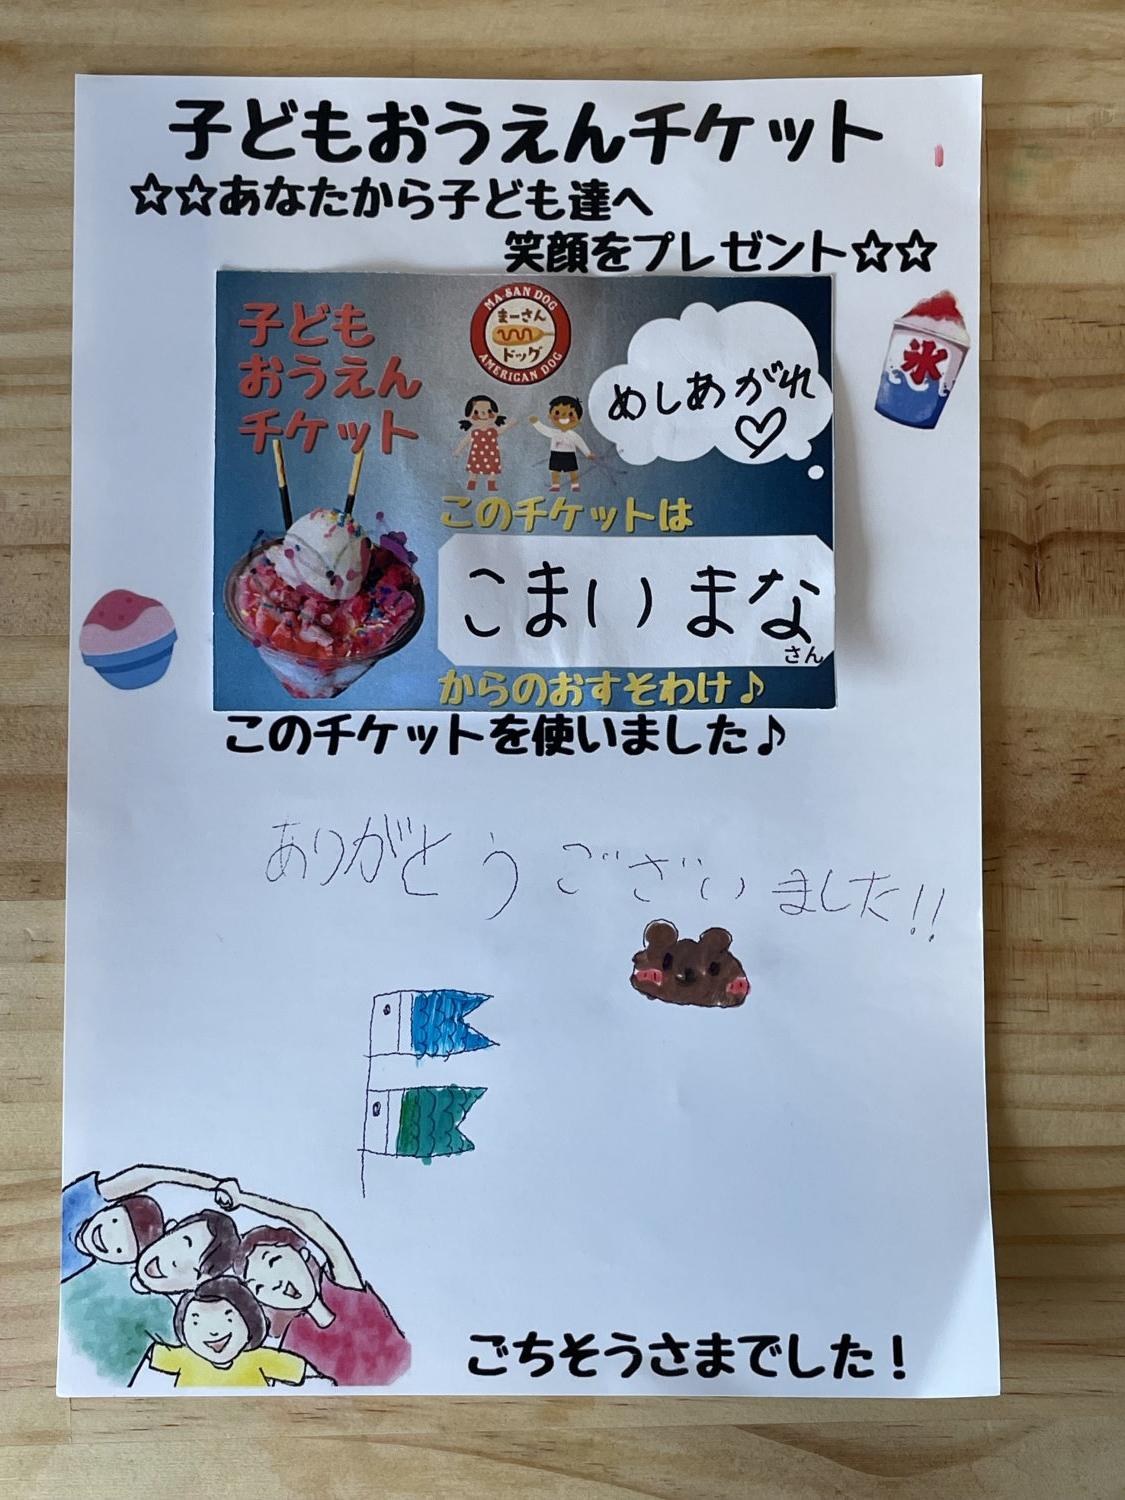 子どもおうえんチケット
☆☆あなたから子ども達へ
笑顔をプレゼント☆☆
子ども
おうえん
チケット
MA SAN DOG
まーさん
ドッグ
AMERICAN DOG
めしあがれ
♡
氷
このチケットは
こまい まな
さん
からのおすそわけ♪
このチケットを使いました♪
ありがとうございました!!
ごちそうさまでした！